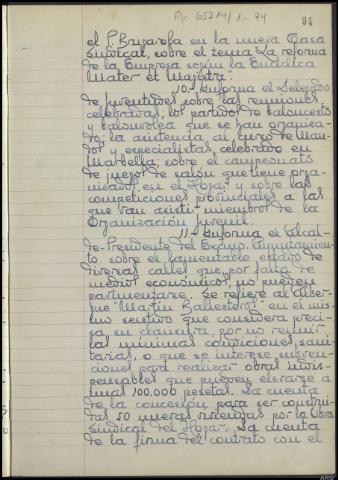 A, G5214/1-94
04
el P. Brugarola en la nueva Casa
Sindical, sobre el tema La reforma
de la Empresa según la Encíclica
Mater et Majistra.
10.- Informa el Delegado
de Juventudes sobre las reuniones
celebradas; los partidos de baloncesto
y balonvolea que se han organiza-
do; la asistencia al curso de Man-
dos y especialistas, celebrado en
Marbella; sobre el campeonato
de juegos de salón que tiene orga-
nizados, en el Hogar y sobre las
competiciones provinciales a las
que van asistir miembros de la
Organización Juvenil.
11.- Informa el Alcal-
de-Presidente del Excmo. Ayuntamien-
to sobre el lamentable estado de
diversas calles que, por falta de
medios económicos, no pueden
pavimentarse. Se refiere al Alber-
gue "Martín Ballesteros" en el mis-
mo sentido que considera preci-
sa su clausura, por no reunir
las mínimas condiciones sani-
tarias, o que se interese subven-
ciones para realizar obras indis-
pensables que pueden elevarse a
unas 100.000 pesetas. Da cuenta
de la concesión para ser construi-
das 50 nuevas viviendas por la Obra
Sindical del Hogar. Da cuenta
de la firma del contrato con el
ARG